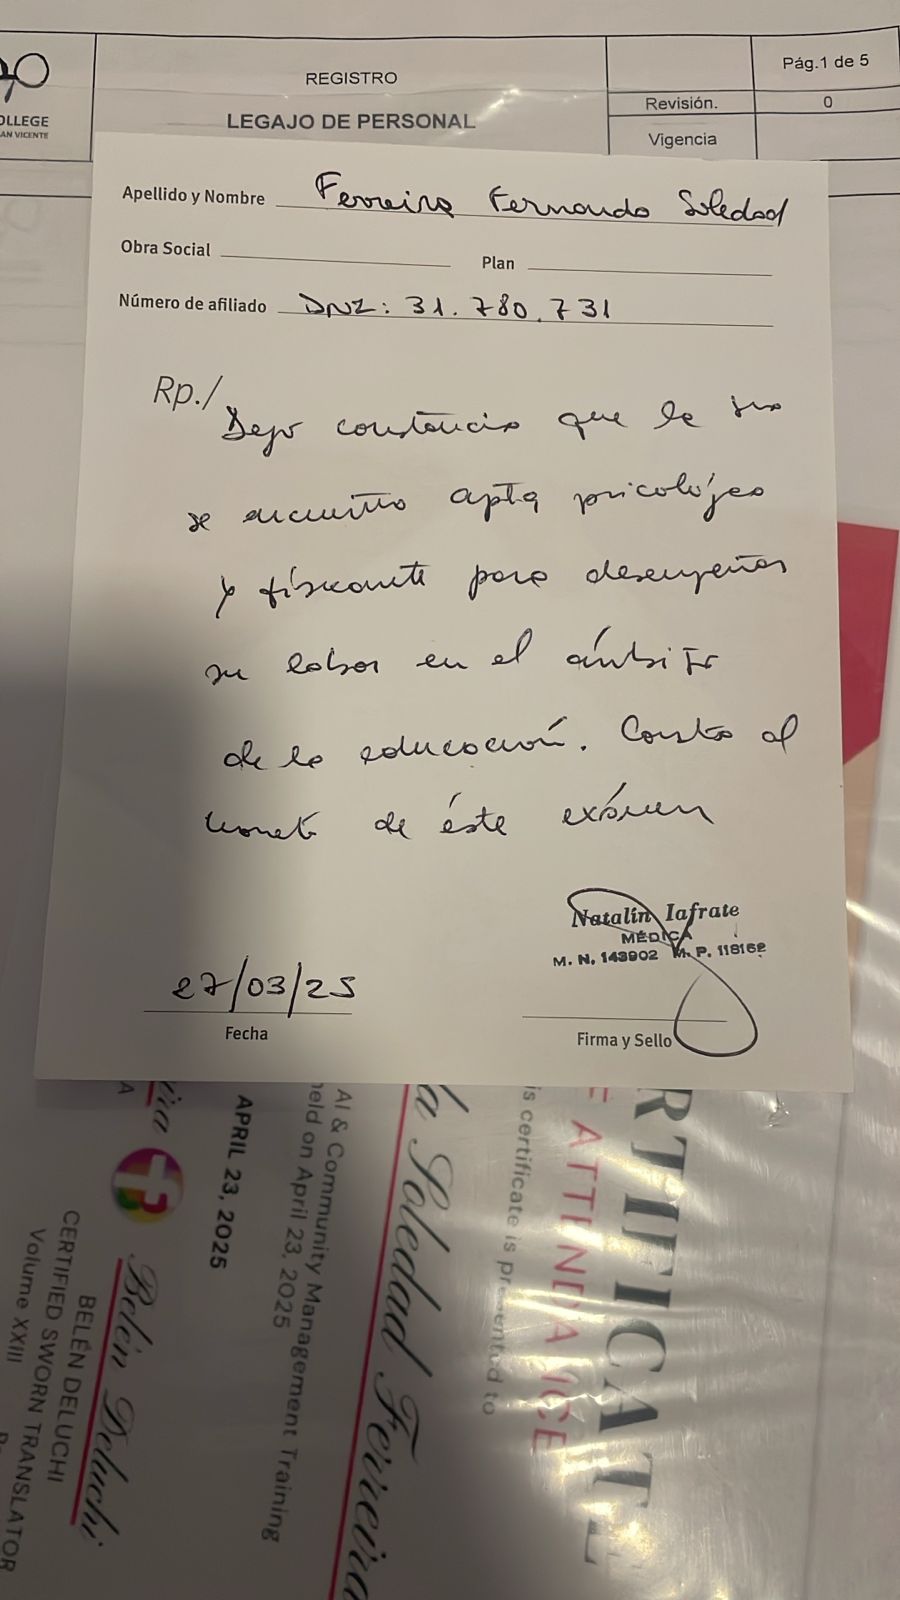 OLLEGE
AN VICENTE
REGISTRO
LEGAJO DE PERSONAL
Pág.1 de 5
Revisión. 0
Vigencia
Apellido y Nombre Ferreira Fernanda Soledad
Obra Social Plan
Número de afiliado DNI: 31.780.731
Rp./
Dejo constancia que la sra
se encuentra apta psicológica
y físicamente para desempeñar
su labor en el ámbito
de la educación. Consta al
de éste exámen
Natalín Iafrate
MÉDICA
M. N. 143902 M. P. 118162
27/03/25
Fecha
Firma y Sello
RTIFICATE
E ATTENDANCE
is certificate is presented to
da Soledad Ferreira
AI & Community Management Training
held on April 23, 2025
APRIL 23, 2025
Belén Deluchi
BELÉN DELUCHI
CERTIFIED SWORN TRANSLATOR
Volume XXIII